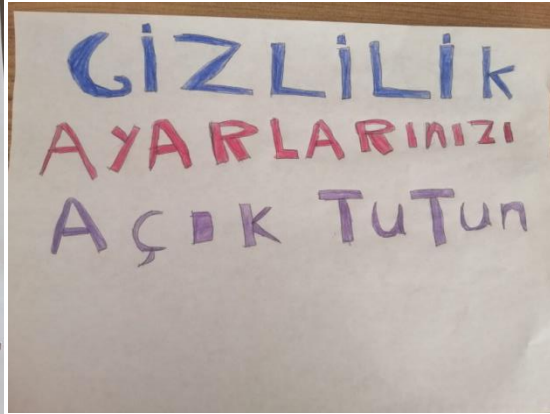 GİZLİLİK
AYARLARINIZI
AÇIK TUTUN